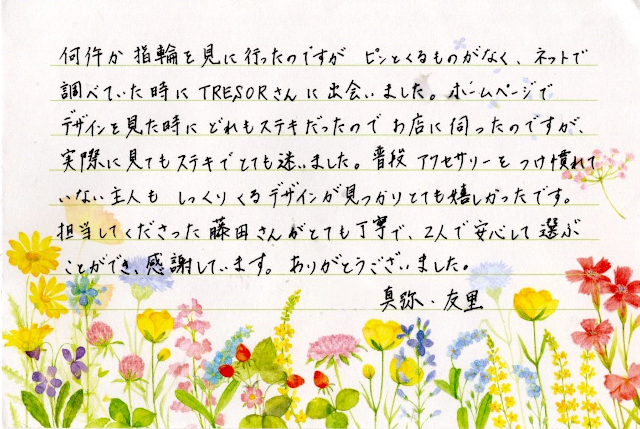 何件か指輪を見に行ったのですが ピンとくるものがなく、ネットで
調べていた時に TRESORさんに出会いました。ホームページで
デザインを見た時に どれもステキだったので お店に伺ったのですが、
実際に見てもステキでとても迷いました。普段 アクセサリーを つけ慣れて
いない主人も しっくりくるデザインが見つかりとても嬉しかったです。
担当してくださった 藤田さんがとても丁寧で、2人で安心して選ぶ
ことができ、感謝しています。ありがとうございました。
真弥・友里